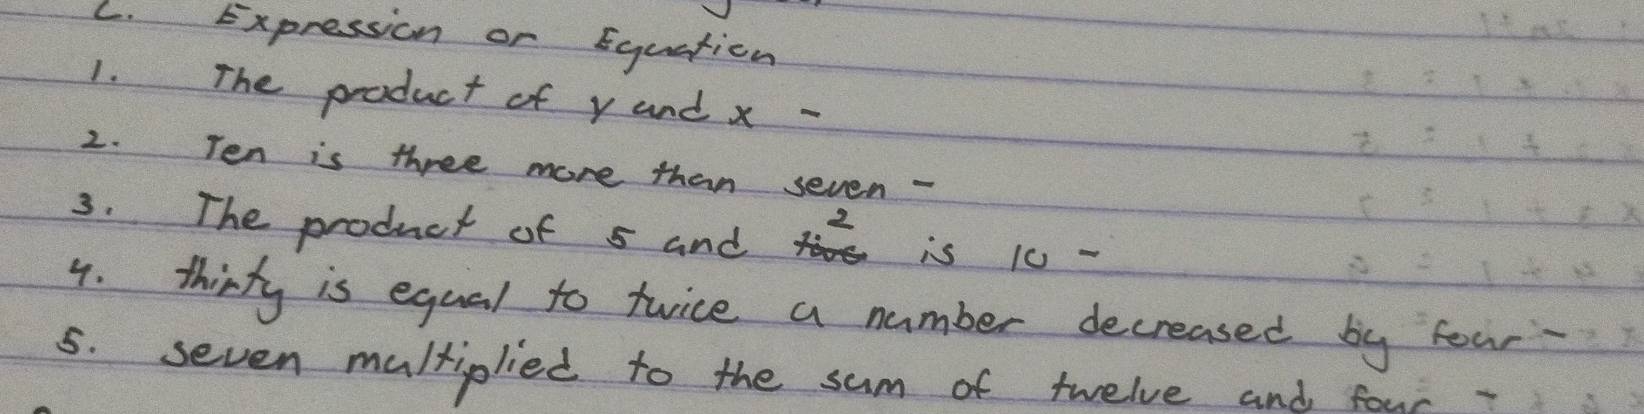 C. Expression or Equation
1. The product of y and x -
2. Ten is three more than seven -
3. The product of 5 and 2 is 10 -
4. thirty is equal to twice a number decreased by four -
5. seven multiplied to the sum of twelve and four -